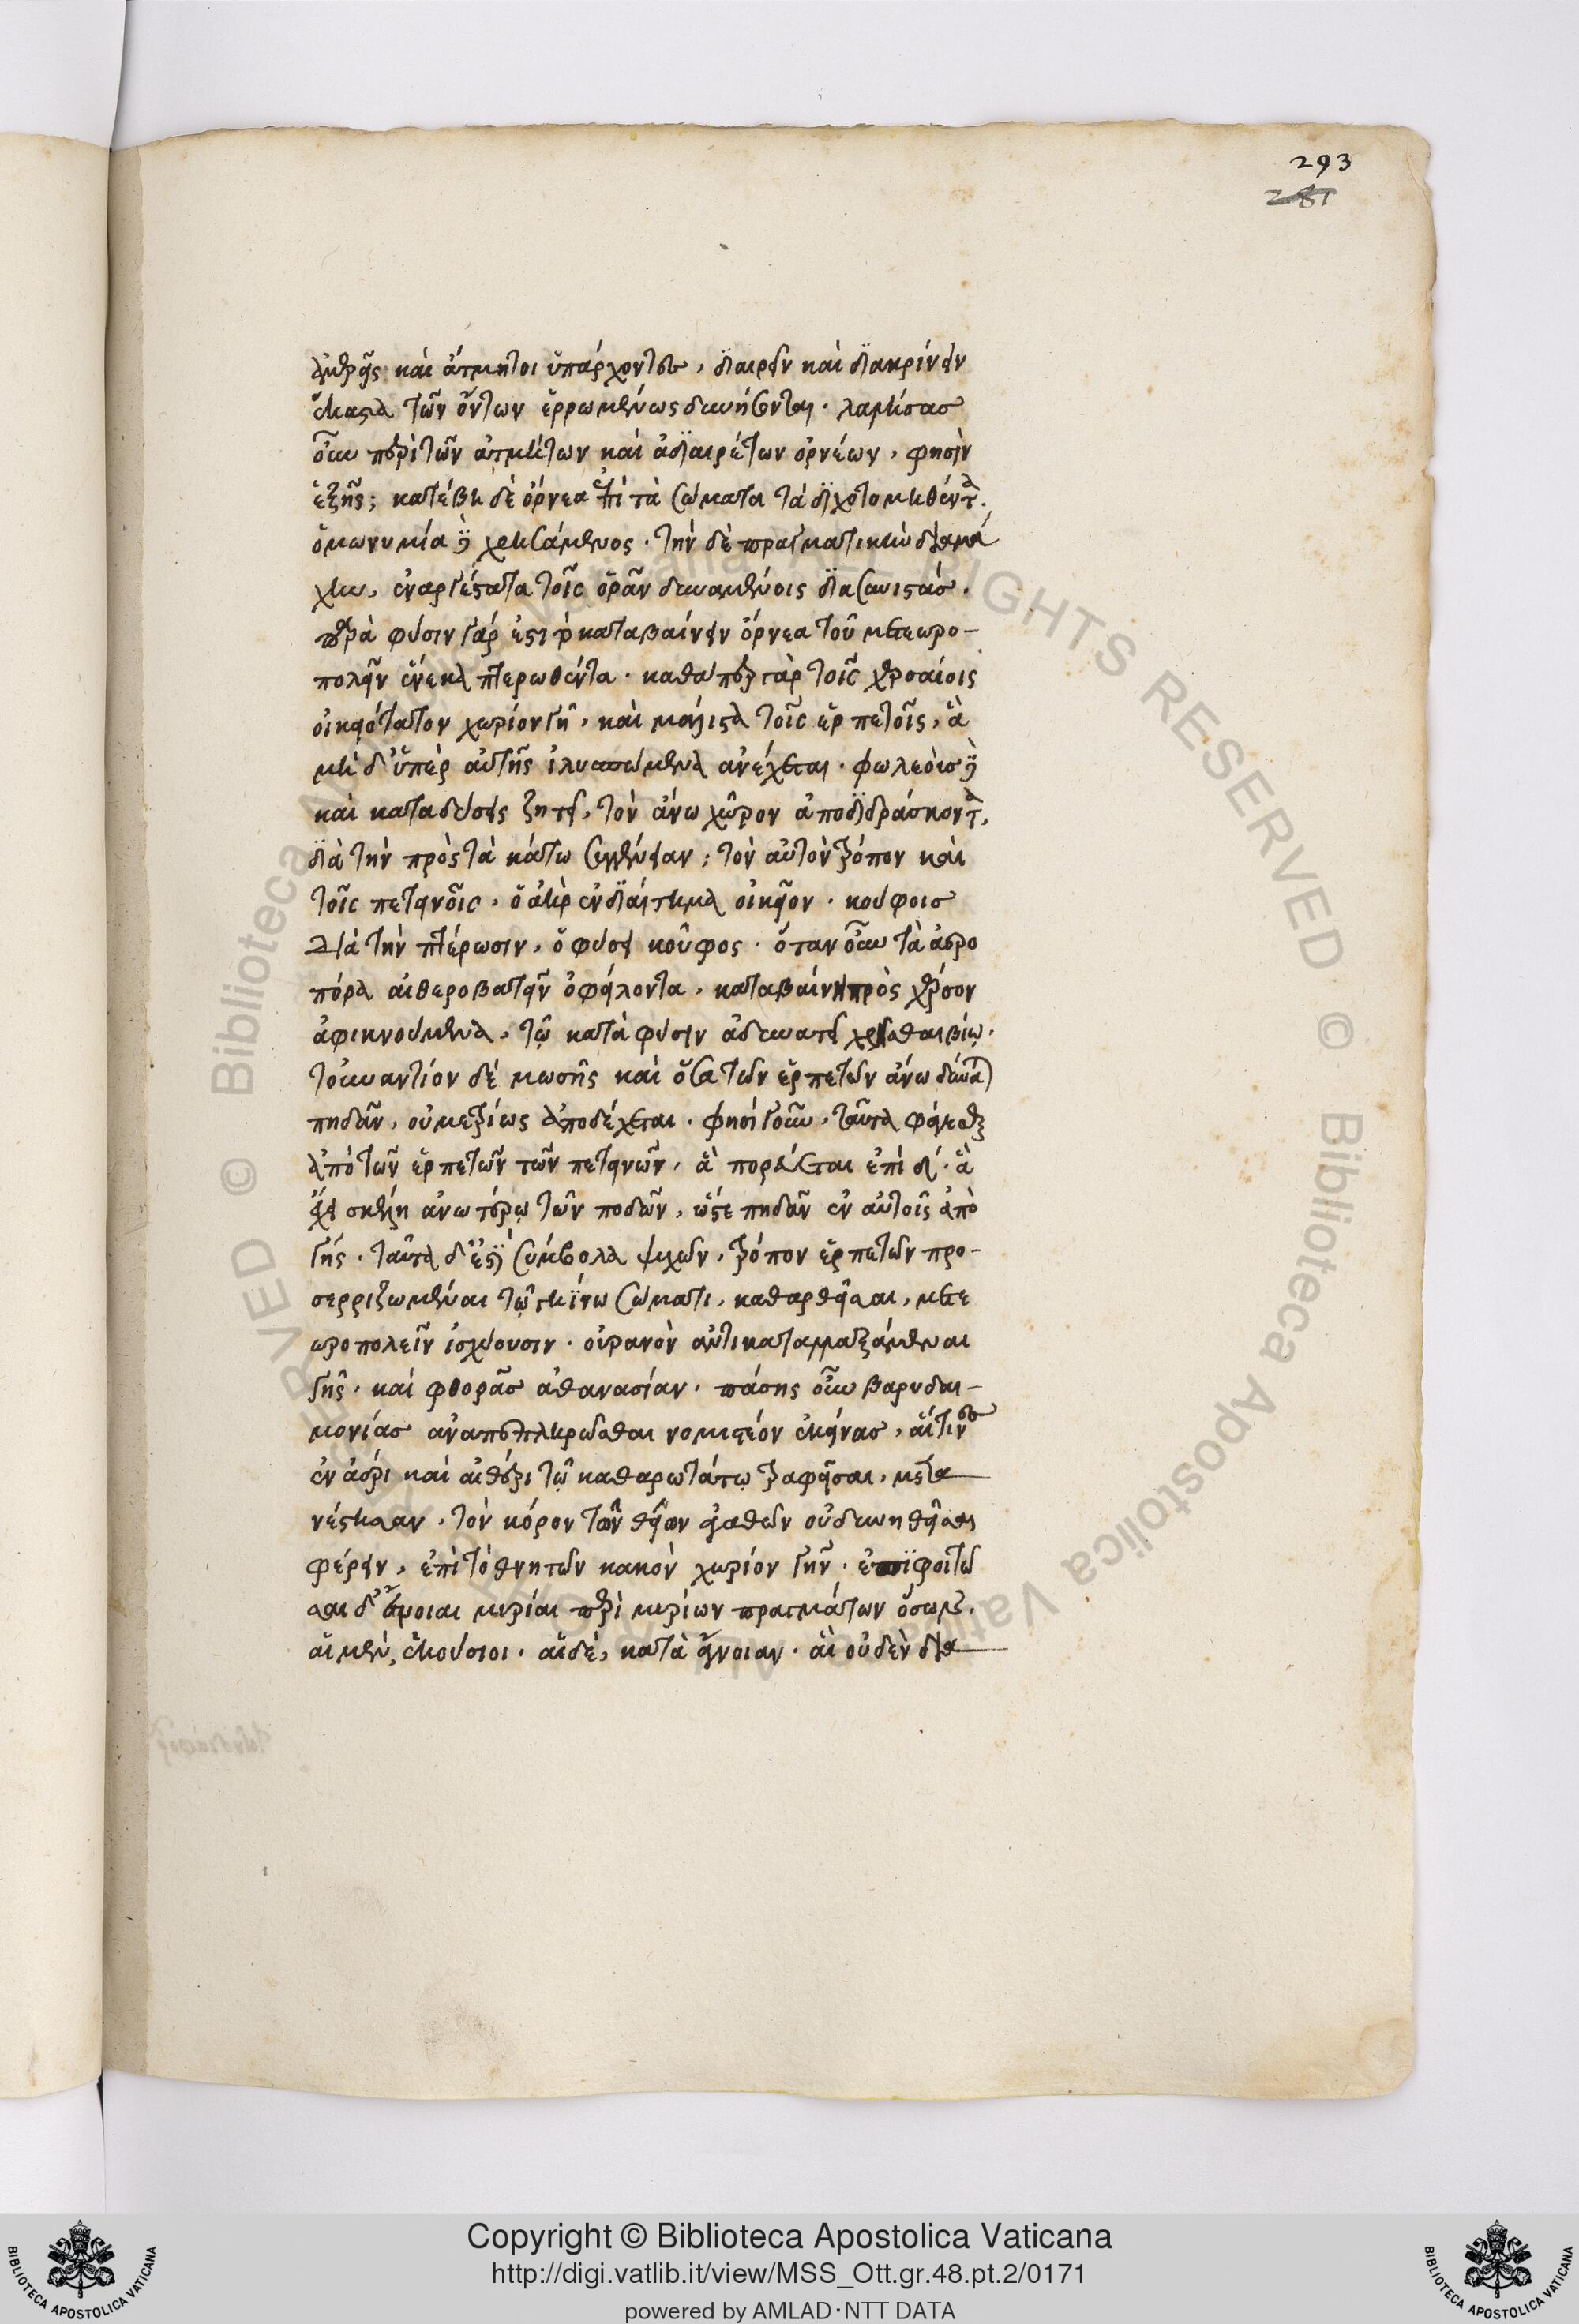 293
281
ἀμερεῖς καὶ ἄτμητοι ὑπάρχοντες, διαιρεῖν καὶ διακρίνειν
ἕκαστα τῶν ὄντων ἐρρωμένως δυνήσονται. λαμήσας
οὖν περὶ τῶν ἀτμήτων καὶ ἀδιαιρέτων ὀρνέων, φησὶν
ἑξῆς; κατέβη δὲ ὄρνεα ἐπὶ τὰ σώματα τὰ διχοτομηθέντα.
ὁμωνυμία μὲν χρησάμενος. τὴν δὲ πραγματικὴν διαμά
χην, ἐναργέστατα τοῖς ὁρᾶν δυναμένοις διασυνιστάς.
παρὰ φύσιν γάρ ἐστι τὸ καταβαίνειν ὄρνεα τοῦ μετεωρο-
πολεῖν ἕνεκα πτερωθέντα. καθάπερ γὰρ τοῖς χερσαίοις
οἰκειότατον χωρίον γῆ, καὶ μάλιστα τοῖς ἑρπετοῖς, ἃ
μὴ δ' ὑπὲρ αὐτῆς ἰλυσπώμενα ἀνέχεται. φωλεοὺς δὲ
καὶ καταδύσεις ζητεῖ, τὸν ἄνω χῶρον ἀποδιδράσκοντα,
διὰ τὴν πρὸς τὰ κάτω συγγένειαν; τὸν αὐτὸν τρόπον καὶ
τοῖς πετεινοῖς, ὁ ἀὴρ ἐνδιαίτημα οἰκεῖον. κούφοις
διὰ τὴν πτέρωσιν, ὁ φύσει κοῦφος. ὅταν οὖν τὰ ἀερο
πόρα αἰθεροβατεῖν ὀφείλοντα, καταβαίνῃ πρὸς χέρσον
ἀφικνούμενα, τῷ κατὰ φύσιν ἀδυνατεῖ χρῆσθαι βίῳ.
τοὐναντίον δὲ μωσῆς καὶ ὅσα τῶν ἑρπετῶν ἄνω δύναται
πηδᾶν, οὐ μετρίως ἀποδέχεται. φησὶ γοῦν, ταῦτα φάγεσθε
ἀπὸ τῶν ἑρπετῶν τῶν πετεινῶν, ἃ πορεύεται ἐπὶ δ'. ἃ
ἔχει σκέλη ἀνωτέρω τῶν ποδῶν, ὥστε πηδᾶν ἐν αὐτοῖς ἀπὸ
γῆς. ταῦτα δ' ἐστὶ σύμβολα ψυχῶν, τρόπον ἑρπετῶν προ-
σερριζωμέναι τῷ γηΐνω σώματι, καθαρθεῖσαι, μετε
ωροπολεῖν ἰσχύουσιν. οὐρανὸν ἀντικαταλλαξάμεναι
γῆς. καὶ φθορᾶς ἀθανασίαν. πάσης οὖν βαρυδαι-
μονίας ἀναπεπληρῶσθαι νομιστέον ἐκείνας, αἵτινες
ἐν ἀέρι καὶ αἰθέρι τῷ καθαρωτάτῳ τραφεῖσαι, μετα
νέστησαν. τὸν κόρον τῶν θείων ἀγαθῶν οὐ δυνηθεῖσαι
φέρειν, ἐπὶ τὸ θνητῶν κακὸν χωρίον γῆν. ἐπιφοιτῶ
σαι δ' ἔννοιαι μυρίαι περὶ μυρίων πραγμάτων ὅσων.
αἱ μὲν, ἑκούσιοι. αἱ δὲ, κατὰ ἄγνοιαν. αἳ οὐδὲν δια
Copyright © Biblioteca Apostolica Vaticana
http://digi.vatlib.it/view/MSS_Ott.gr.48.pt.2/0171
powered by AMLAD·NTT DATA